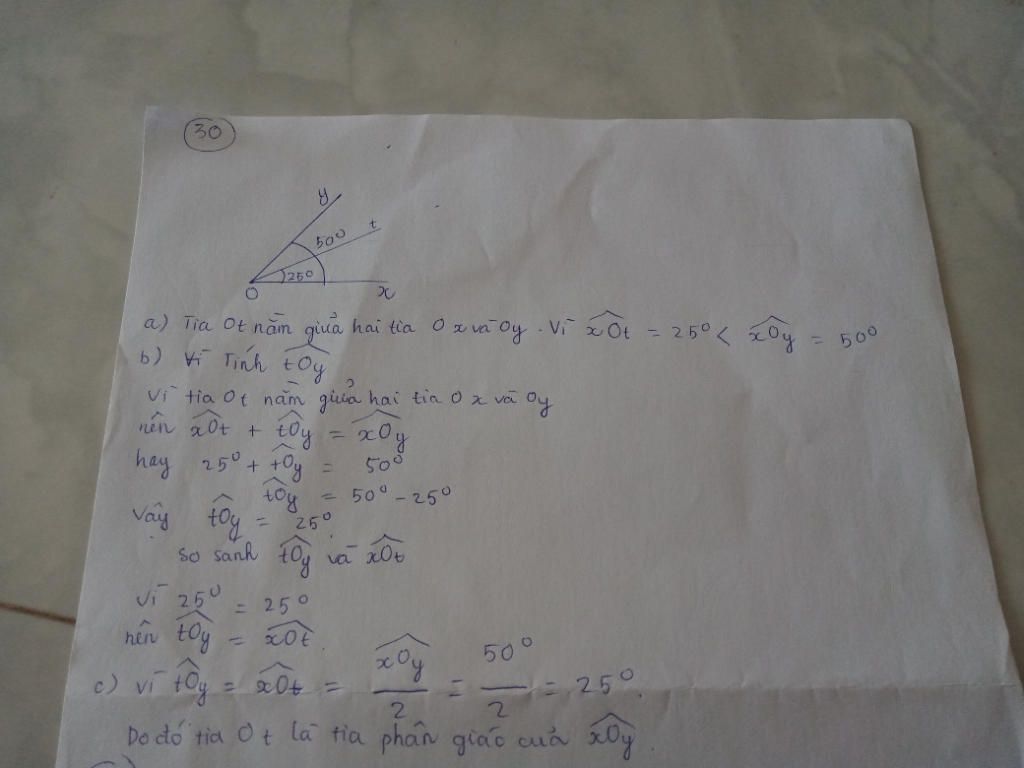 30
y
t
50°
25°
O
x
a) Tia Ot nằm giữa hai tia Ox và Oy. Vì xOt = 25° < xOy = 50°
b) Vì Tính tOy
Vì tia Ot nằm giữa hai tia Ox và Oy
nên xOt + tOy = xOy
hay 25° + tOy = 50°
tOy = 50° - 25°
Vậy tOy = 25°
so sánh tOy và xOt
Vì 25° = 25°
nên tOy = xOt
c) Vì tOy = xOt = xOy/2 = 50°/2 = 25°.
Do đó tia Ot là tia phân giác của xOy.